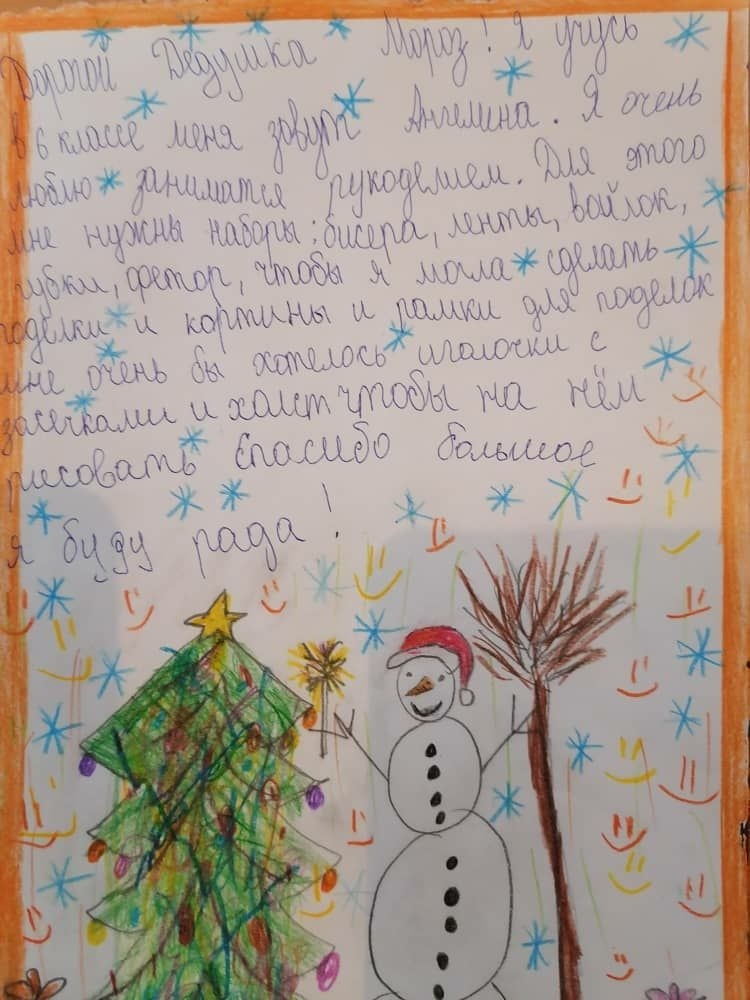 Дорогой Дедушка Мороз! Я учусь
в 6 классе меня зовут Ангелина. Я очень
люблю заниматся рукоделием. Для этого
мне нужны наборы: бисера, ленты, войлок,
губки, фетор, чтобы я могла сделать
поделки и картины и рамки для поделок
мне очень бы хотелось иголочки с
засечками и холст чтобы на нём
рисовать Спасибо большое
я буду рада!